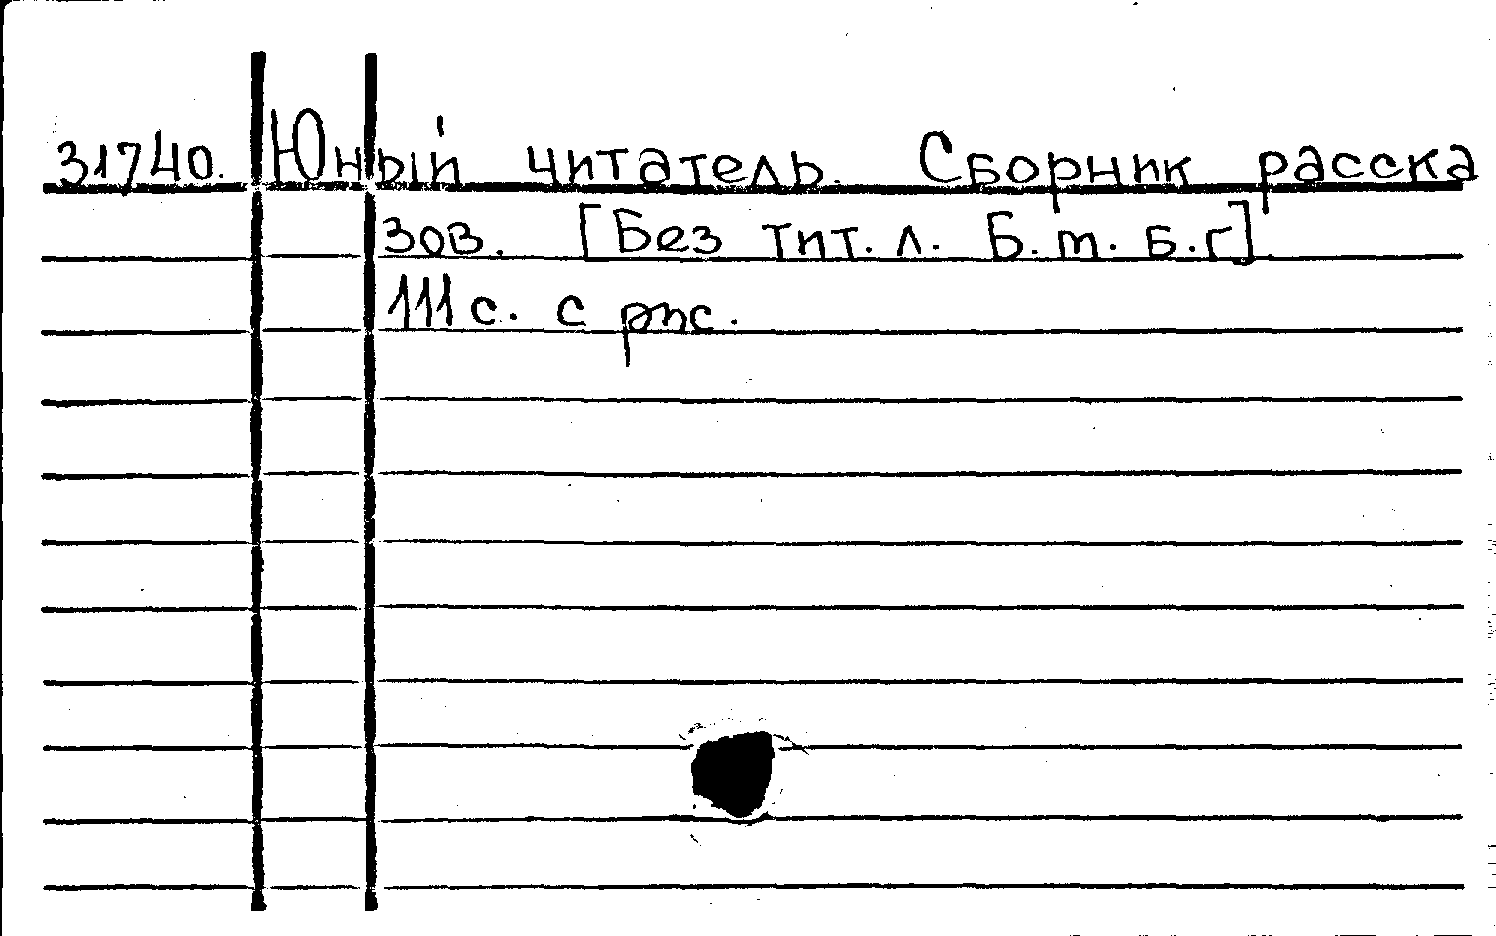 31740. Юный читатель. Сборник расска
зов. [Без тит. л. Б. т. Б. г]
111 с. с рис.